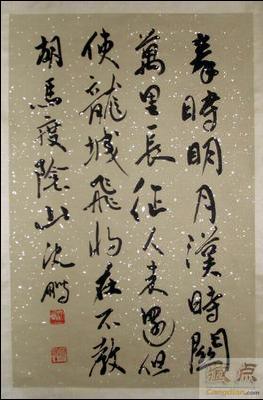 秦時明月漢時關
萬里長征人未還但
使龍城飛将在不教
胡馬度陰山沈鵬
藏点
Cangdian.com